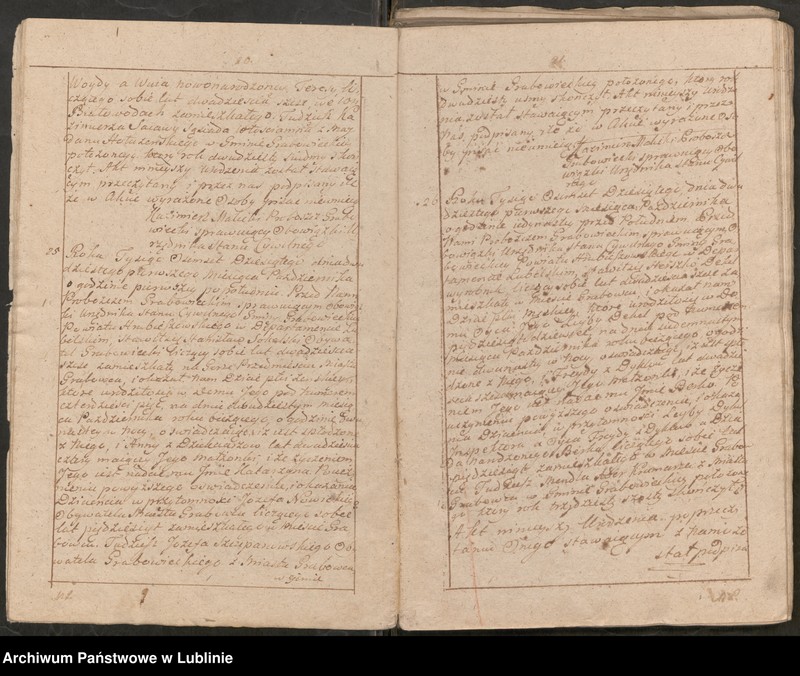 Woydy a Wuia nowonarodzoney Teresy, li-
czącego sobie lat dwadzieścia sześć, we wsi
Białowodach zamieszkałego. Tudzież Ka-
zimierza
położoney, który rok dwudziesty siódmy skoń-
czył. Akt ninieyszy Urodzenia został stawaią-
cym przeczytany i przez nas podpisany ile
że w Akcie wyrażone Osoby pisać nieumieią
Kazimierz Malicki Proboszcz Grabo-
wiecki sprawuiący Obowiązki U-
rzędnika Stanu Cywilnego
25 Roku Tysiąc Osmset Dziesiątego dnia dwu-
dziestego pierwszego Miesiąca Października
o godzinie pierwszey popołudniu. Przed Nami
Proboszczem Grabowieckim sprawuiącym Obowiąz-
ki Urzędnika Stanu Cywilnego Gminy Grabowieckiey
Powiatu Hrubieszowskiego w Departamencie Lu-
belskim, stawił się Stanisław Obywa-
tel Grabowiecki liczący sobie lat dwadzieścia
sześć zamieszkały na Górze Przedmieściu Miasta
Grabowca, i okazał Nam Dziecie płci żeńskiey,
które urodziło się w Domu Jego pod Numerem
na dniu dwudziestym miesią-
ca Października roku bieżącego, o godzinie dwu-
nastey w Nocy, oświadczaiąc iż iest spłodzone
z Niego, i Anny z lat dwadzieścia
cztery maiącey Jego małżonki, i że życzeniem
Jego iest nadać mu Imie Katarzyna. Po uczy-
nieniu powyższego oświadczenia, i okazaniu
Dziecięcia w przytomności Józefa
Obywatela Miasta Grabowca liczącego sobie
lat piędziesiąt zamieszkałego w Mieście Gra-
bowcu. Tudzież Józefa Szczepanowskiego Oby-
watela Grabowieckiego z Miasta Grabowca
w gminie
w Gminie Grabowieckiey położonego, który rok
dwudziesty ósmy skończył. Akt ninieyszy Urodze-
nia został stawaiącym przeczytany i przez
Nas podpisany ile że w Akcie wyrażone Oso-
by pisać nieumieią
Kazimierz Malicki Proboszcz
Grabowiecki sprawuiący Obo-
wiązki Urzędnika Stanu Cywil-
nego
26 Roku Tysiąc Osmset Dziesiątego, dnia dwu-
dziestego pierwszego Miesiąca Października
o godzinie iedynastey przed Południem. Przed
Nami Proboszczem Grabowieckim, sprawuiącym O-
bowiązki Urzędnika Stanu Cywilnego Gminy Gra-
bowieckiey Powiatu Hrubieszowskiego w Depar-
tamencie Lubelskim, stawił się
wyrobnik liczący sobie lat dwadzieścia sześć Za-
mieszkały w Mieście Grabowcu, i okazał nam
Dziecie płci męskiey, które urodziło się w Do-
mu Oyca Jego pod Numerem
na dniu siedemnastym
miesiąca Października roku bieżącego o godzi-
nie dwunastey w Nocy, oświadczaiąc iż iest spło-
dzone z Niego, i Freydy z lat dwadzie-
ścia maiącey Jego Małżonki, i że życze-
niem Jego iest nadać mu Imie Berko. Po
uczynieniu powyższego oświadczenia, i okaza-
niu Dziecięcia, w przytomności
a Oyca Freydy a Dzia-
da narodzonego Berka, liczącego sobie lat
piędziesiąt zamieszkałego w Mieście Grabo-
wcu. Tudzież Mendla z Miasta
Grabowca w Gminie Grabowieckiey położone-
go, który rok trzydziesty szósty skończył.
Akt ninieyszy Urodzenia po przeczy-
taniu Onego stawaiącym z Nami zo-
stał podpisa
Archiwum Państwowe w Lublinie